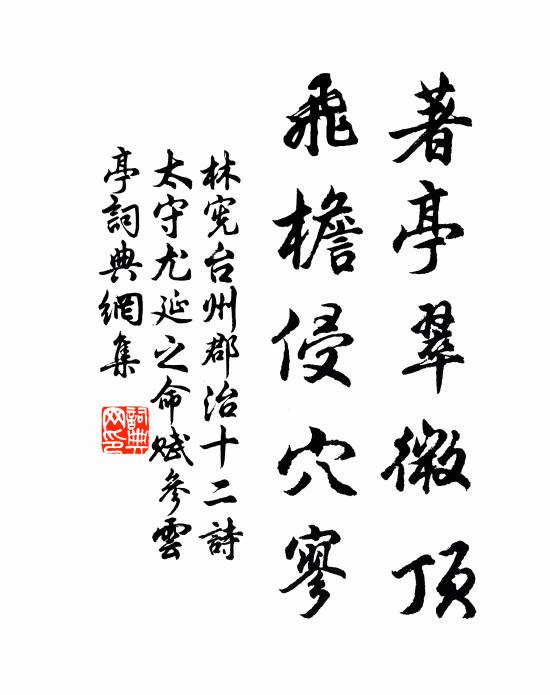 著亭翠微頂
飛檐侵穴寥
林宪台州郡治十二詩
太守尤延之命賦參雲
亭詞典網集
詞典网印